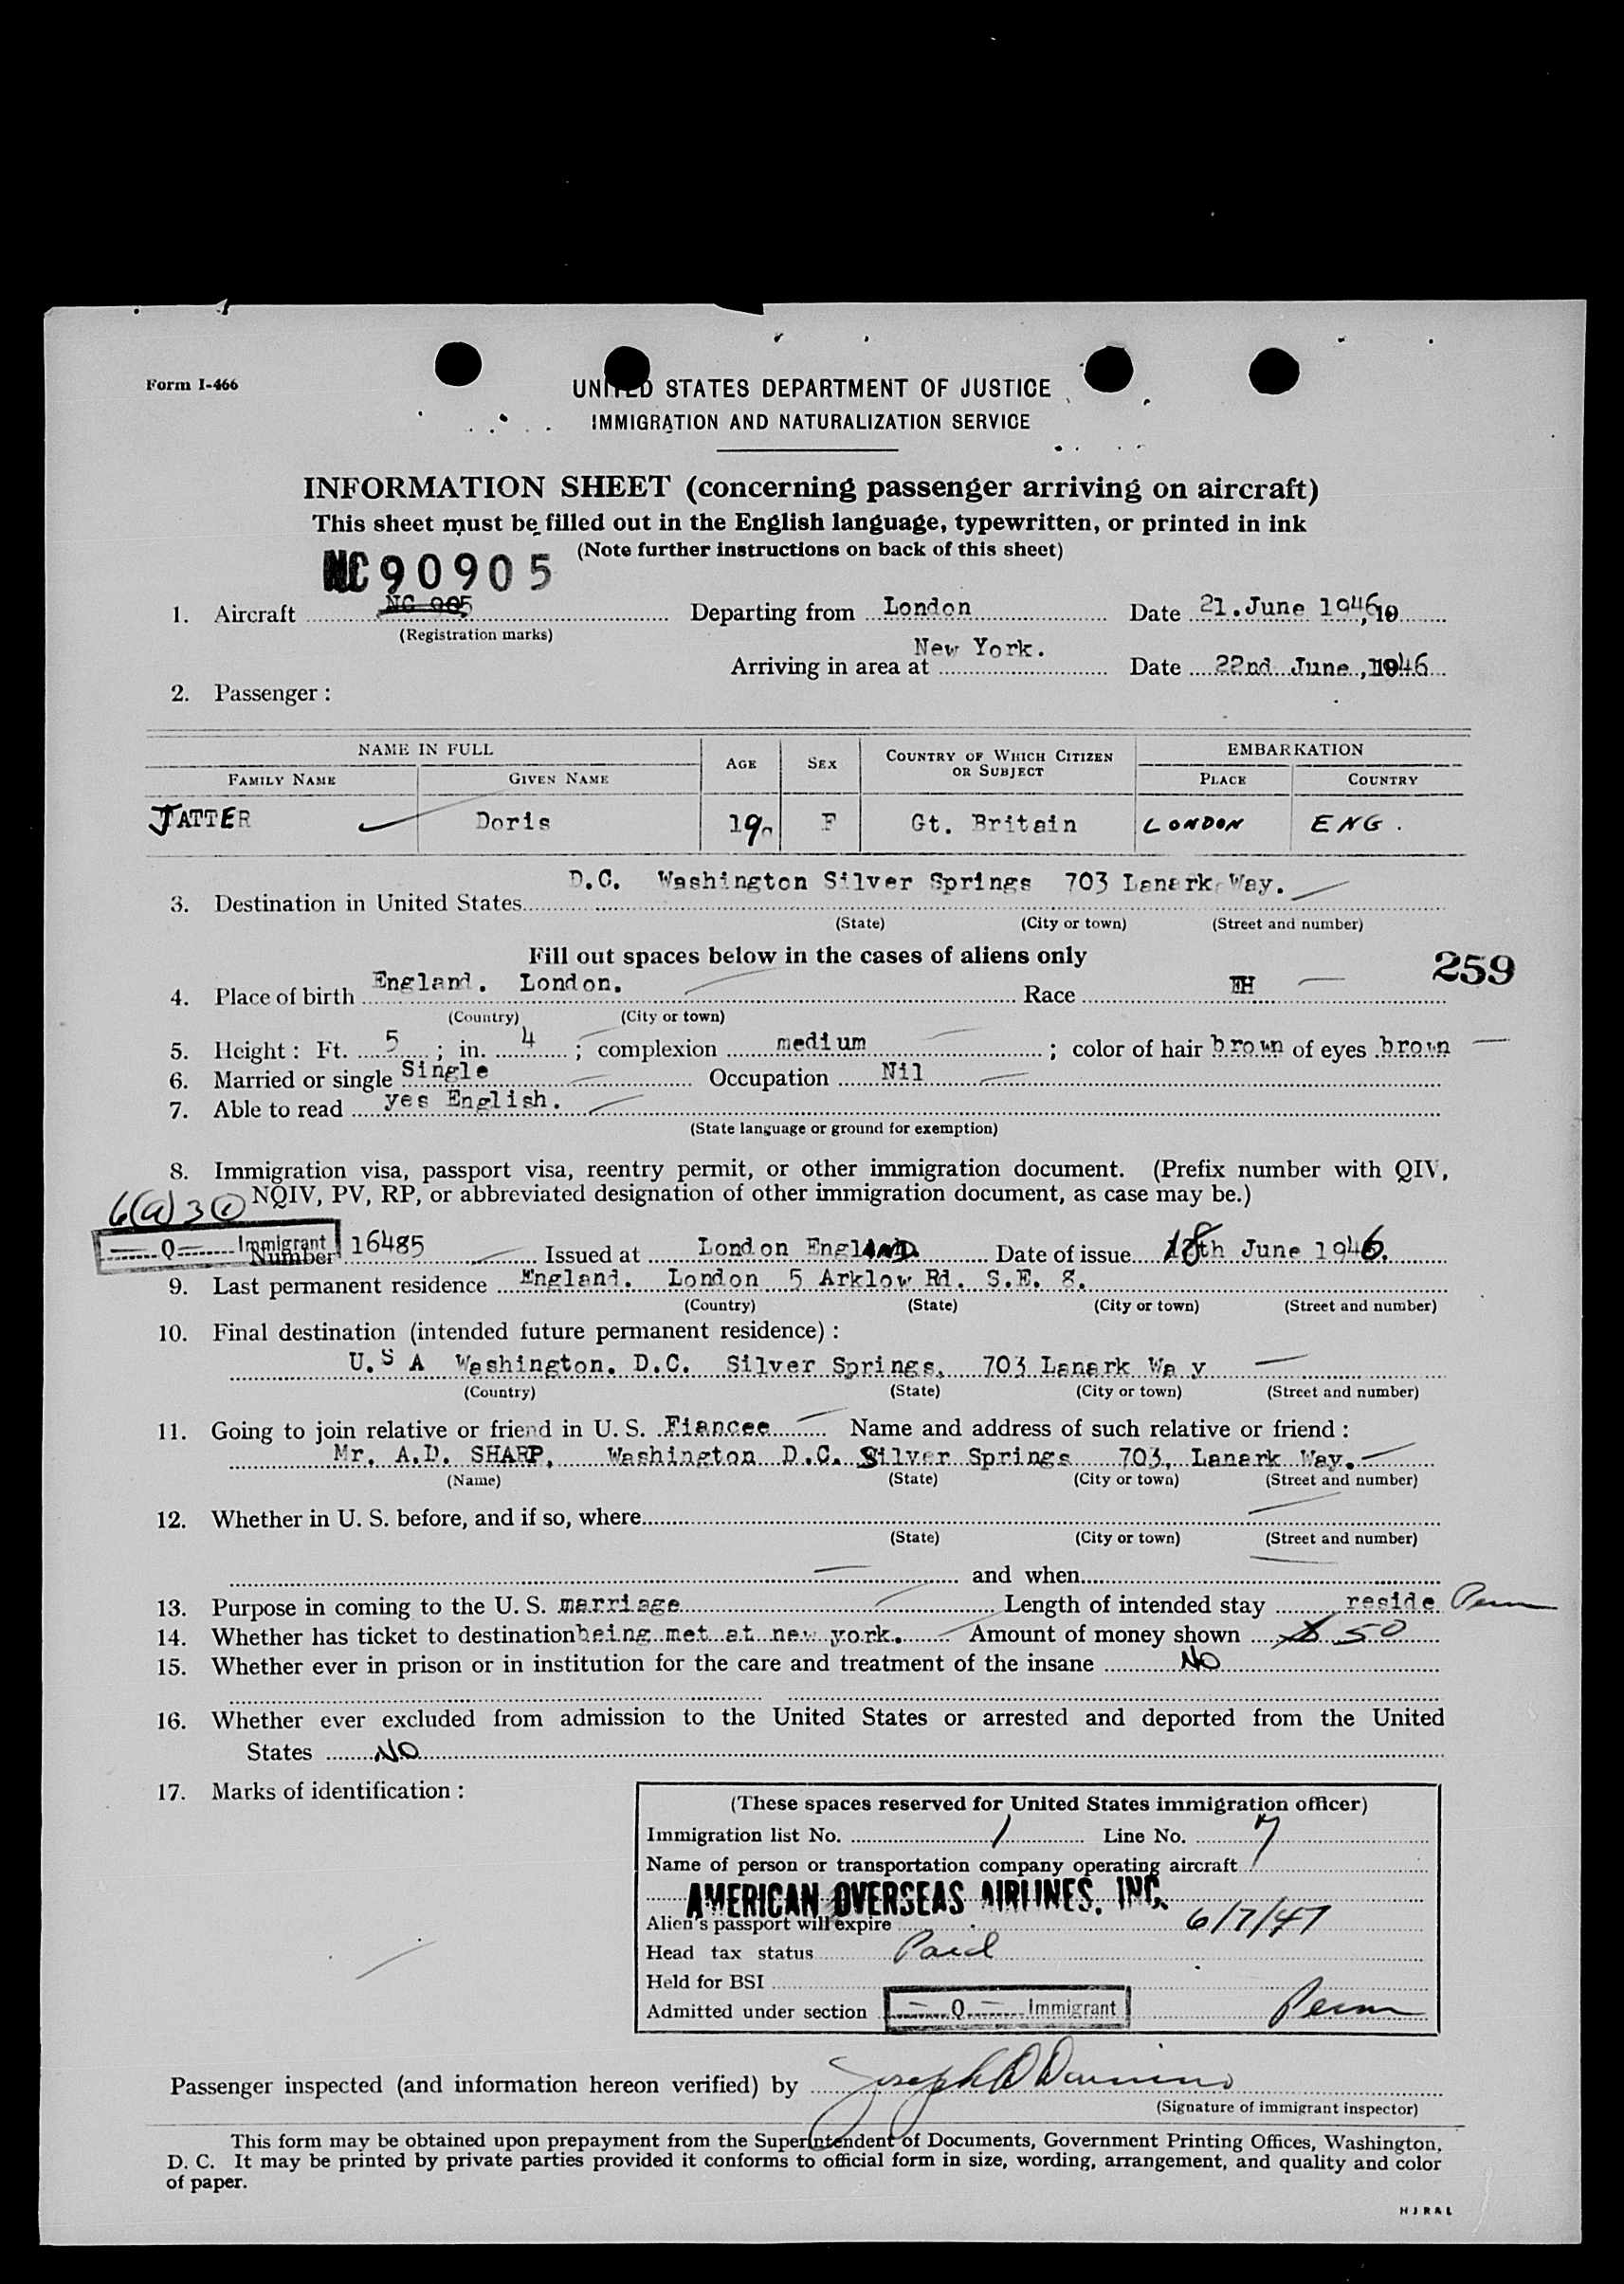 Form I-466
UNITED STATES DEPARTMENT OF JUSTICE
IMMIGRATION AND NATURALIZATION SERVICE
INFORMATION SHEET (concerning passenger arriving on aircraft)
This sheet must be filled out in the English language, typewritten, or printed in ink
(Note further instructions on back of this sheet)
NC90905
1. Aircraft NC 905 Departing from London Date 21.June 1946, 19
(Registration marks)
Arriving in area at New York. Date 22nd June, 1946
2. Passenger :
NAME IN FULL AGE SEX COUNTRY OF WHICH CITIZEN OR SUBJECT EMBARKATION
FAMILY NAME GIVEN NAME PLACE COUNTRY
JATTER Doris 19 F Gt. Britain LONDON ENG.
3. Destination in United States D.C. Washington Silver Springs 703 Lanark Way.
(State) (City or town) (Street and number)
Fill out spaces below in the cases of aliens only
259
4. Place of birth England. London. Race
(Country) (City or town)
5. Height : Ft. 5 ; in. 4 ; complexion medium ; color of hair brown of eyes brown
6. Married or single Single Occupation Nil
7. Able to read yes English.
(State language or ground for exemption)
8. Immigration visa, passport visa, reentry permit, or other immigration document. (Prefix number with QIV,
NQIV, PV, RP, or abbreviated designation of other immigration document, as case may be.)
6(a)3
Q Immigrant
Number 16485 Issued at London EnglAND Date of issue 18th June 1946.
9. Last permanent residence England. London 5 Arklow Rd. S.E. 8.
(Country) (State) (City or town) (Street and number)
10. Final destination (intended future permanent residence) :
U.S A Washington. D.C. Silver Springs, 703 Lanark Wa y
(Country) (State) (City or town) (Street and number)
11. Going to join relative or friend in U. S. Fiancee Name and address of such relative or friend :
Mr. A.D. SHARP, Washington D.C. Silver Springs 703, Lanark Way.
(Name) (State) (City or town) (Street and number)
12. Whether in U. S. before, and if so, where
(State) (City or town) (Street and number)
and when
13. Purpose in coming to the U. S. marriage Length of intended stay reside Perm
14. Whether has ticket to destination being met at new york. Amount of money shown $ 50
15. Whether ever in prison or in institution for the care and treatment of the insane NO
16. Whether ever excluded from admission to the United States or arrested and deported from the United
States NO
17. Marks of identification :
(These spaces reserved for United States immigration officer)
Immigration list No. 1 Line No. 7
Name of person or transportation company operating aircraft
AMERICAN OVERSEAS AIRLINES, INC.
Alien's passport will expire 6/7/47
Head tax status Paid
Held for BSI
Admitted under section Q Immigrant Perm
Passenger inspected (and information hereon verified) by Joseph
(Signature of immigrant inspector)
This form may be obtained upon prepayment from the Superintendent of Documents, Government Printing Offices, Washington,
D. C. It may be printed by private parties provided it conforms to official form in size, wording, arrangement, and quality and color
of paper.